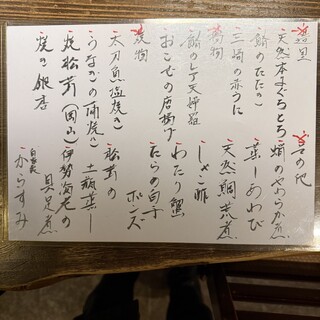 天然本まぐろとろ
鯵のたたき
三崎の赤うに
鯒のレア天婦羅
おこぜの唐揚げ
焼物
太刀魚塩焼き
うなぎの蒲焼き
焼松茸(岡山)
焼き銀杏
その他
蛸のやわらか煮
蒸しあわび
天然鯛荒煮
しゃこ酢
わたり蟹
たらの白子ポンズ
松茸の土瓶蒸し
伊勢海老の具足煮
自家製からすみ